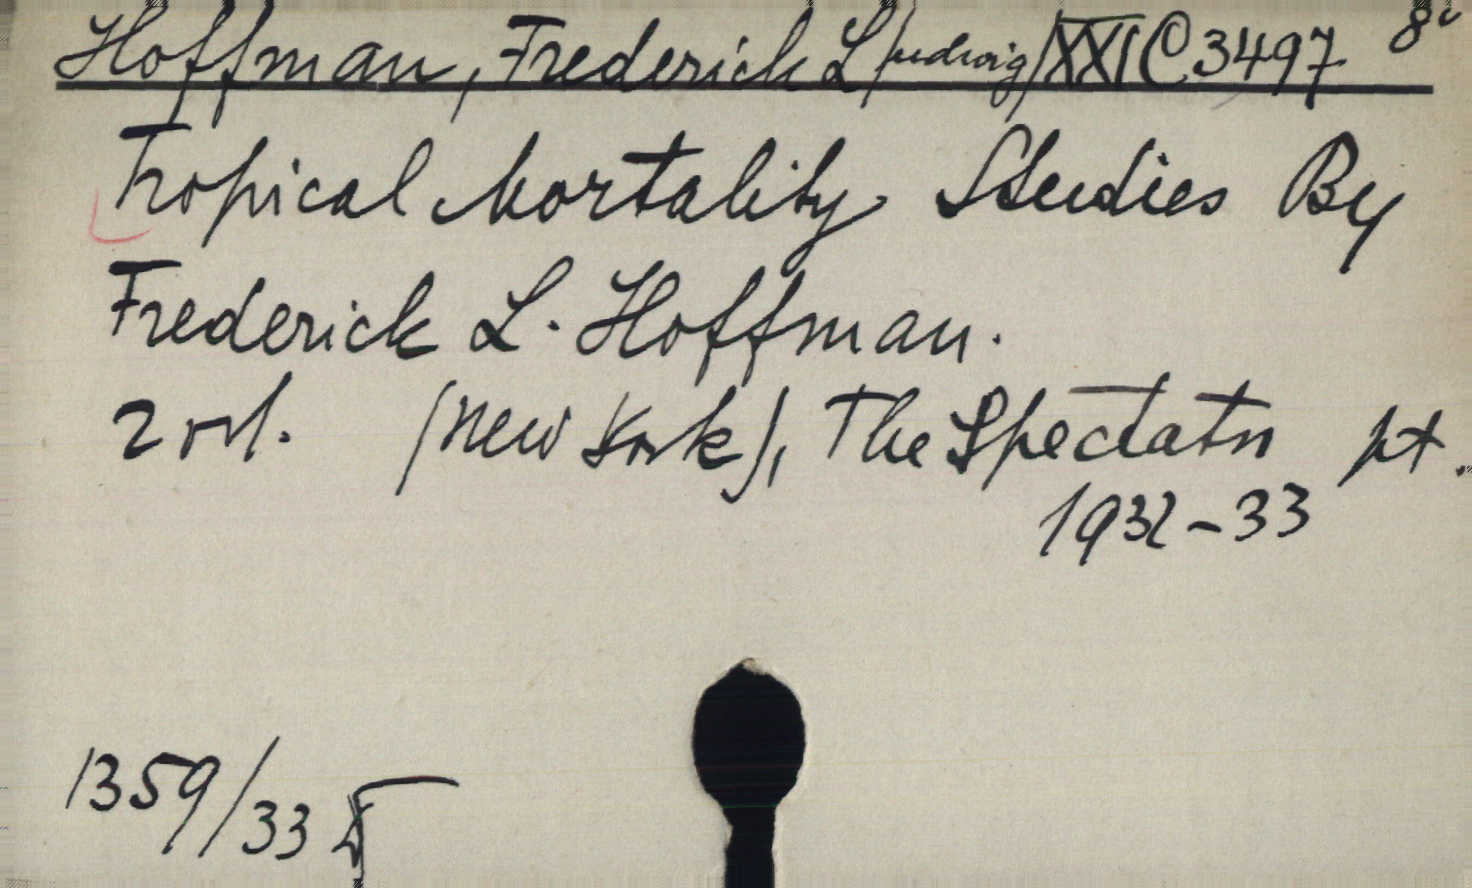 Hoffman, Frederick L/udwig/ XXI C 3497 8°
Tropical Mortality Studies By
Frederick L. Hoffman.
2 vol. (New York), The Spectator pt.
1932-33
1359/33